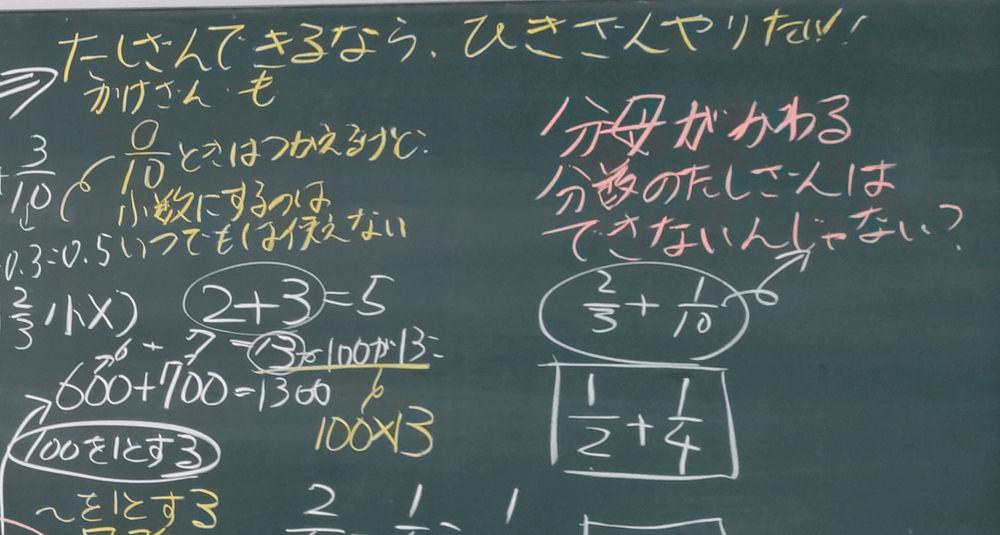 たしざんできるなら、ひきざんやりたい!!
かけざんも
3/10
0/10 ときはつかえるけど:
小数にするのは
いつでもは使えない
0.3=0.5
2/3 小×)
2+3=5
6 + 7 = 13 100が13=
600+700=1300
100×13
100を1とする
〜を1とする
分母がかわる
分数のたしざんは
できないんじゃない?
2/3 + 1/10
1/2 + 1/4